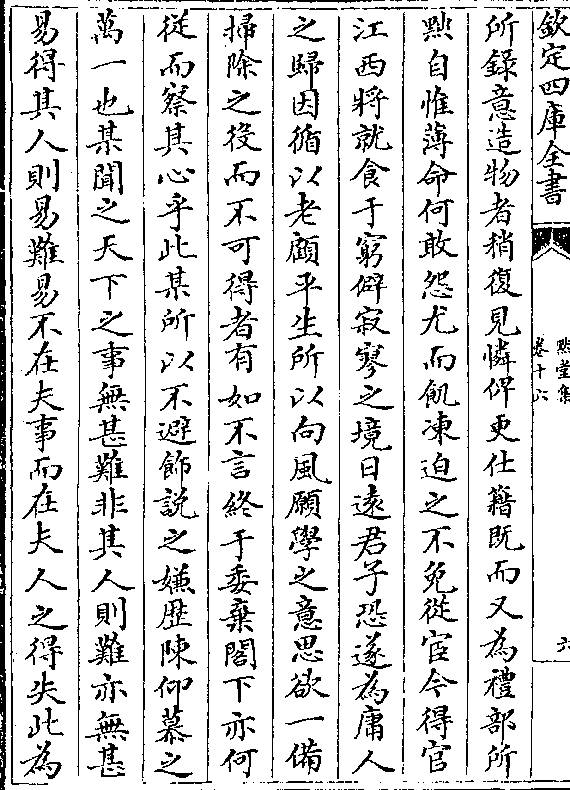 欽定四庫全書
點堂集
卷十六
六
所錄意造物者稍復見憐俾更仕籍既而又為禮部所
黜自惟薄命何敢怨尤而飢凍迫之不免從宦今得官
江西將就食于窮僻寂寥之境日遠君子恐遂為庸人
之歸因循以老顧平生所以向風願學之意思欲一備
掃除之役而不可得者有如不言終于委棄閣下亦何
從而察其心乎此某所以不避飾説之嫌歴陳仰慕之
萬一也某聞之天下之事無甚難非其人則難亦無甚
易得其人則易難易不在夫事而在夫人之得失此為